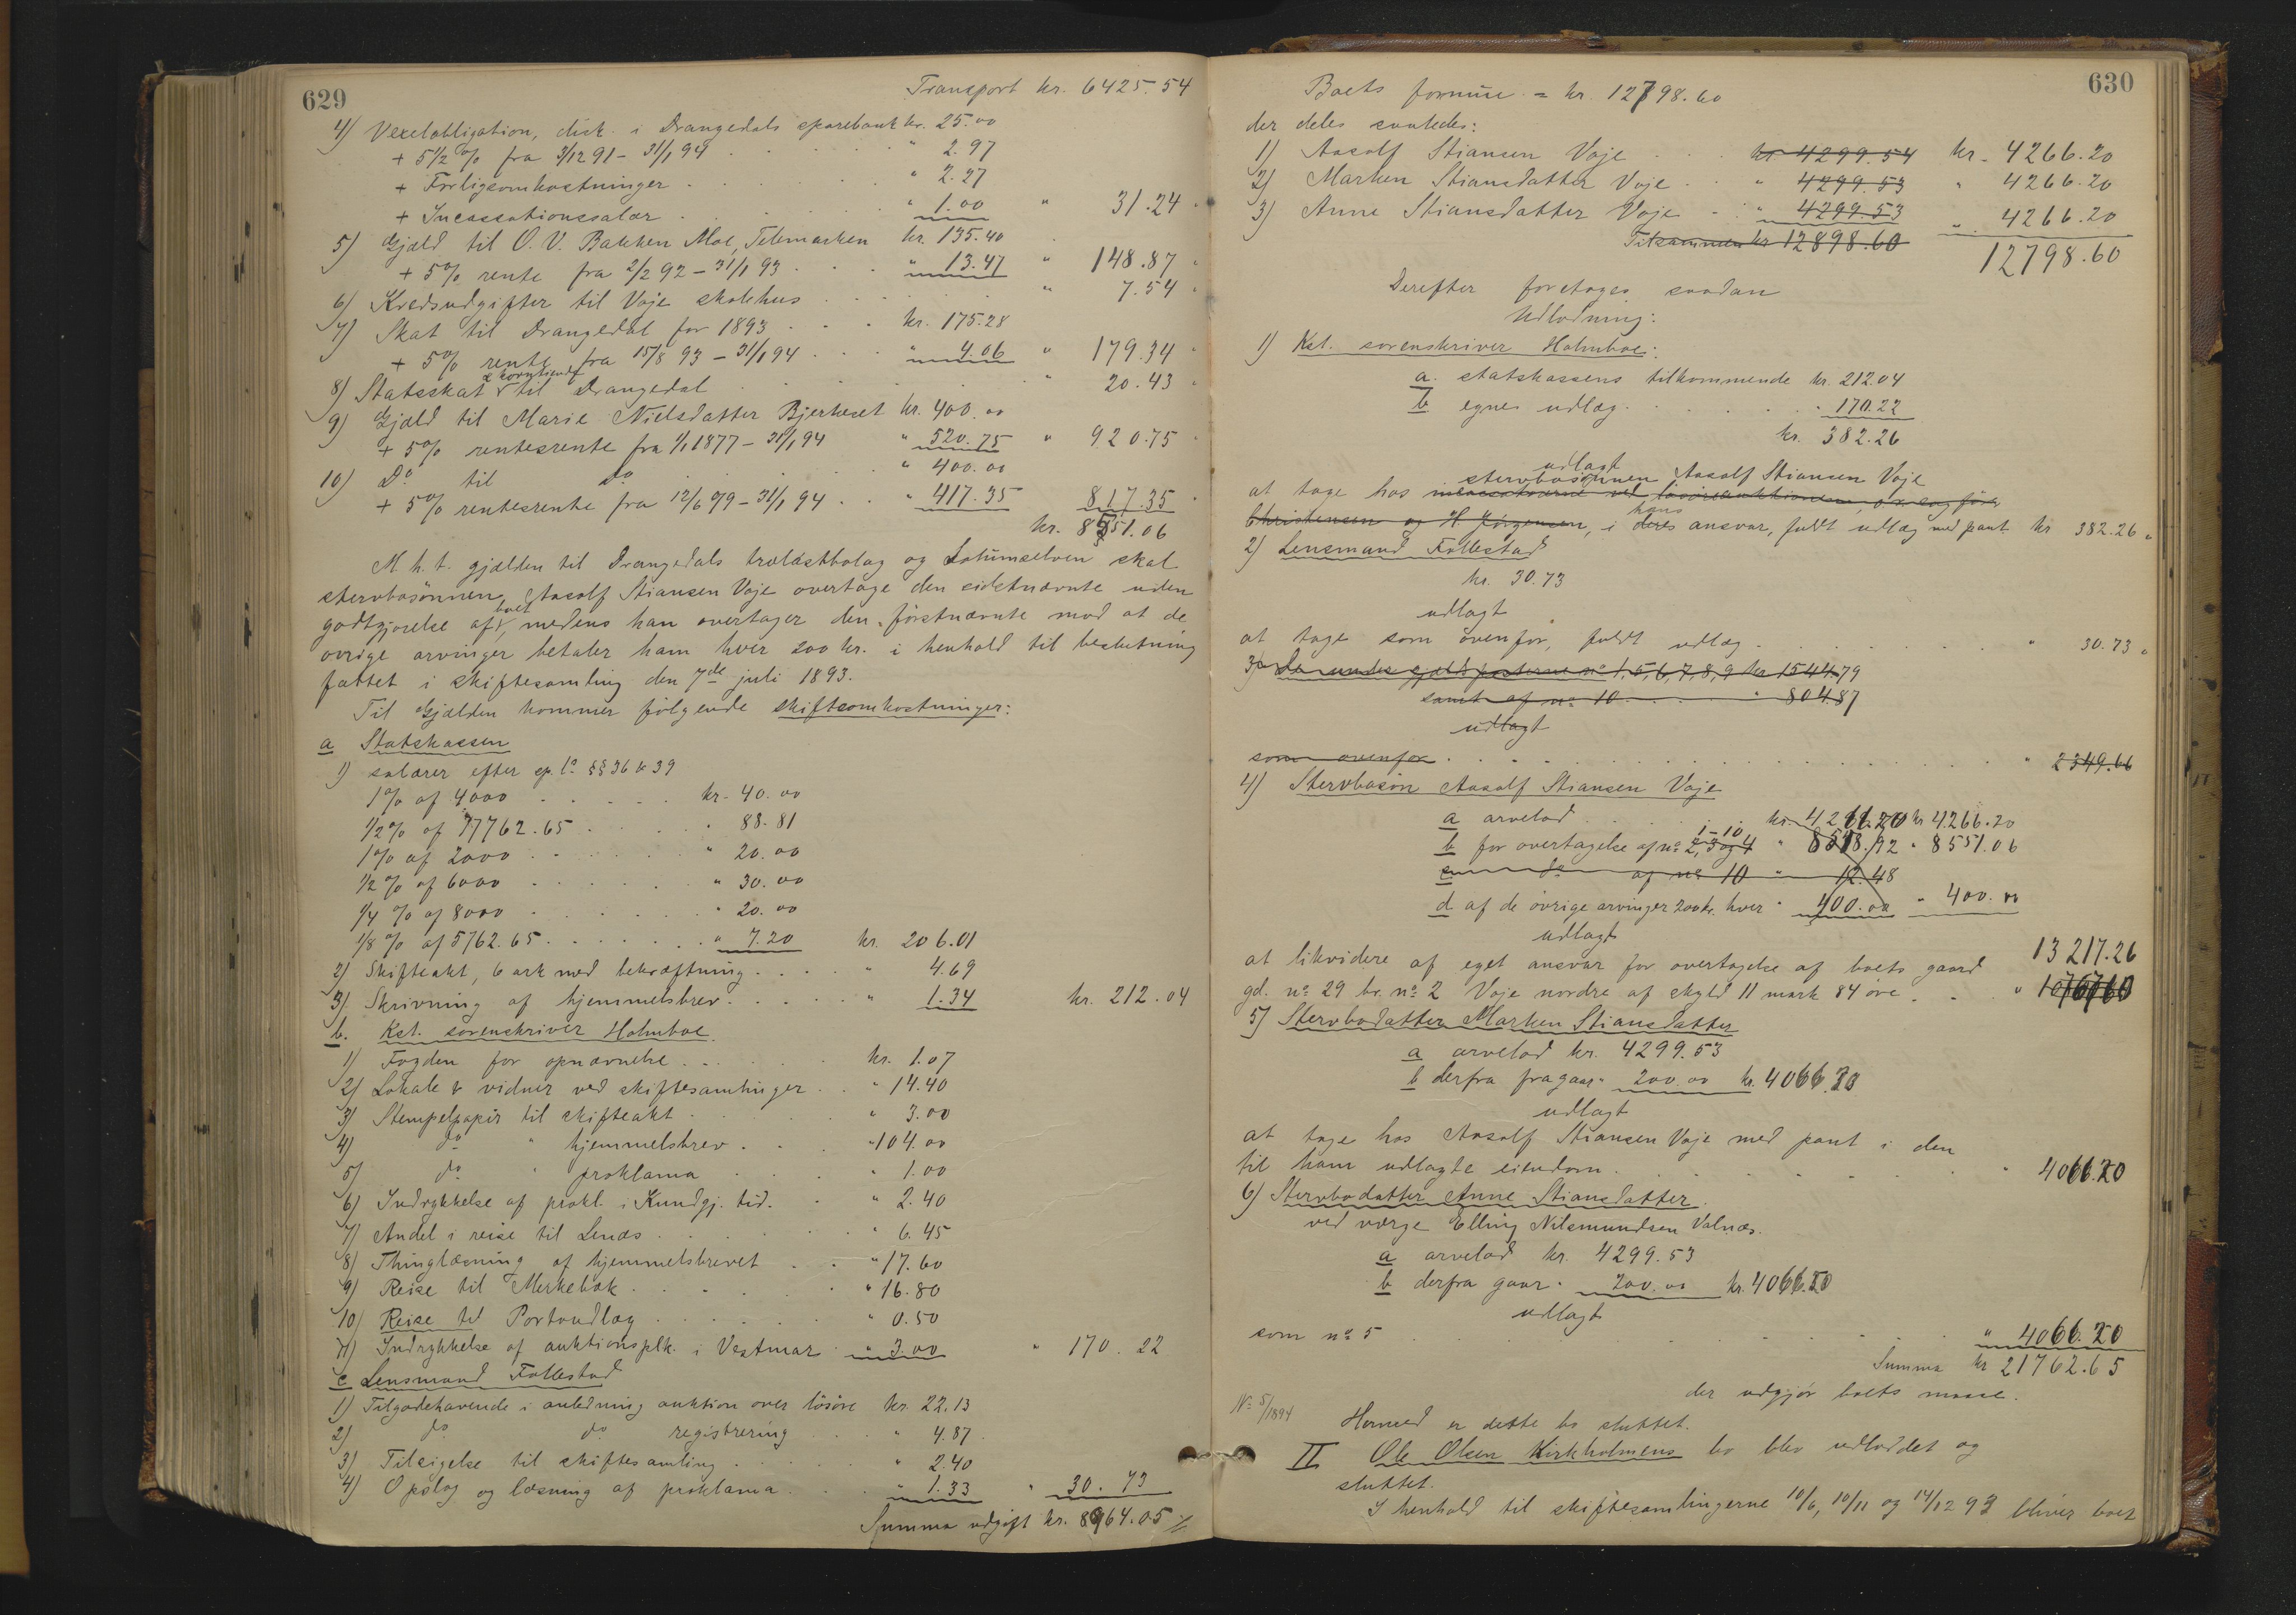 629
Transport kr. 6425.54
4) Vexelobligation, disk. i Drangedals sparebank kr. 25.00
+ 5 1/2 % fra 3/12 91 - 31/1 94 . . . . " 2.97
+ Forligsomkostninger . . . . " 2.27
+ Incassationssalær . . . . " 1.00 " 31.24
5) Gjæld til O. V. Bakken Moe, Telemarken kr. 135.40
+ 5% rente fra 2/2 92 - 31/1 93 . . . " 13.47 " 148.87
6) Kredsudgifter til Voje skolehus . . . . " 7.54
7) Skat til Drangedal for 1893 . . . kr. 175.28
+ 5% rente fra 15/8 93 - 31/1 94 . . . " 4.06 " 179.34
8) Statsskat & korntiende til Drangedal . . . . " 20.43
9) Gjæld til Marie Nielsdatter Bjerkeset kr. 400.00
+ 5% rentesrente fra 1/1 1877 - 31/1 94 " 520.75 " 920.75
10) Do til do . . . " 400.00
+ 5% rentesrente fra 12/6 79 - 31/1 94 . . " 417.35 817.35
kr. 8551.06
M. h. t. gjælden til Drangedals trælastbolag og Lotumselven skal
stervbosönnen Aasolf Stiansen Voje overtage den sidstnævnte uden
godtgjörelse af boet, medens han overtager den förstnævnte mod at de
övrige arvinger betaler ham hver 200 kr. i henhold til beslutning
fattet i skiftesamling den 7de juli 1893.
Til Gjælden kommer fölgende skifteomkostninger:
a Statskassen
1) salærer efter sp. l. §§ 36 & 39
1% af 4000 . . . . . kr. 40.00
1/2% af 17762.65 . . . . " 88.81
1% af 2000 . . . . . " 20.00
1/2% af 6000 . . . . . " 30.00
1/4 % af 8000 . . . . . " 20.00
1/8 % af 5762.65 . . . . . " 7.20 kr. 206.01
2) Skifteakt, 6 ark med bekræftning . . . " 4.69
3) Skrivning af hjemmelsbrev . . . . " 1.34 kr. 212.04
b. Kst. sorenskriver Holmboe
1) Fogden for opnævnelse . . . kr. 1.07
2) Lokale & vidner ved skiftesamlinger . . " 14.40
3) Stempelpapir til skifteakt . . . " 3.00
4) do " hjemmelsbrev . . . " 104.00
5) do " proklama . . . " 1.00
6) Indrykkelse af prokl. i Kundgj. tid. . " 2.40
7) Andel i reise til Lenæs . . . . " 6.45
8) Thinglæsning af hjemmelsbrevet . . " 17.60
9) Reise til Merkebæk . . . . . " 16.80
10) Reise til Portoudlæg . . . . " 0.50
11) Indrykkelse af auktionsplk. i Vestmar " 3.00 " 170.22
c Lensmand Follestad
1) Tilgodehavende i anledning auktion over lösöre kr. 22.13
2) do do registrering . . " 4.87
3) Tilsigelse til skiftesamling . . . " 2.40
4) Opslag og læsning af proklama . . " 1.33 " 30.73
Summa udgift kr. 8964.05
630
Boets formue = kr. 12798.60
der deles saaledes:
1) Aasolf Stiansen Voje . . . kr 4299.54 kr. 4266.20
2) Marken Stiansdatter Voje . . " 4299.53 " 4266.20
3) Anne Stiansdatter Voje . . " 4299.53 " 4266.20
Tilsammen kr 12898.60 12798.60
Derefter foretages saadan
Udlodning:
1) Kst. sorenskriver Holmboe:
a. statskassens tilkommende kr. 212.04
b egnes udlæg . . . . . " 170.22
kr. 382.26
udlagt
stervbosönnen Aasolf Stiansen Voje
at tage hos ved lösöreauktionen,
Christensen og H. Jörgensen, i deres hans ansvar, fuldt udlæg med pant kr 382.26
2) Lensmand Follestad
kr. 30.73
udlagt
at tage som ovenfor, fuldt udlæg . . . . . " 30.73
3) De under gjældsposterne no 1, 5, 6, 7, 8, 9 kr 1544.79
samt af no 10 . . . . . " 804.87
udlagt
som ovenfor . . . . . . " 2349.66
4) Stervbosön Aasolf Stiansen Voje
a arvelod . . . . kr. kr 4266.20
b for overtagelse af no 2, 3 og 4 1-10 " " 8551.06
c do af no 10 " 12.48
d af de övrige arvinger 200 kr. hver " 400.00 " 400.00
udlagt
13217.26
at likvidere af eget ansvar for overtagelse af boets gaard
gd. no 29 br. no 2 Voje nordre af skyld 11 mark 84 öre . . "
5) Stervbodatter Marken Stiansdatter
a arvelod kr. 4299.53
b derfra fragaar " 200.00 kr. 4066.20
udlagt
at tage hos Aasolf Stiansen Voje med pant i den
til ham udlagte eiendom . . . . . . " 4066.20
6) Stervbodatter Anne Stiansdatter
ved værge Elling Nilsmundsen Valnæs.
a arvelod kr. 4299.53
b derfra gaar " 200.00 kr. 4066.20
udlagt
som no 5 . . . . . . . " 4066.20
Summa kr 21762.65
der udgjör boets masse.
No 5/1894
Hermed er dette bo sluttet.
II Ole Olsen Kirkholmens bo blev udloddet og
sluttet.
I henhold til skiftesamlingerne 10/6, 10/11 og 14/12 93 bliver boet